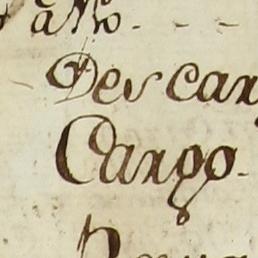 año. - - -
Descar
Cargo.